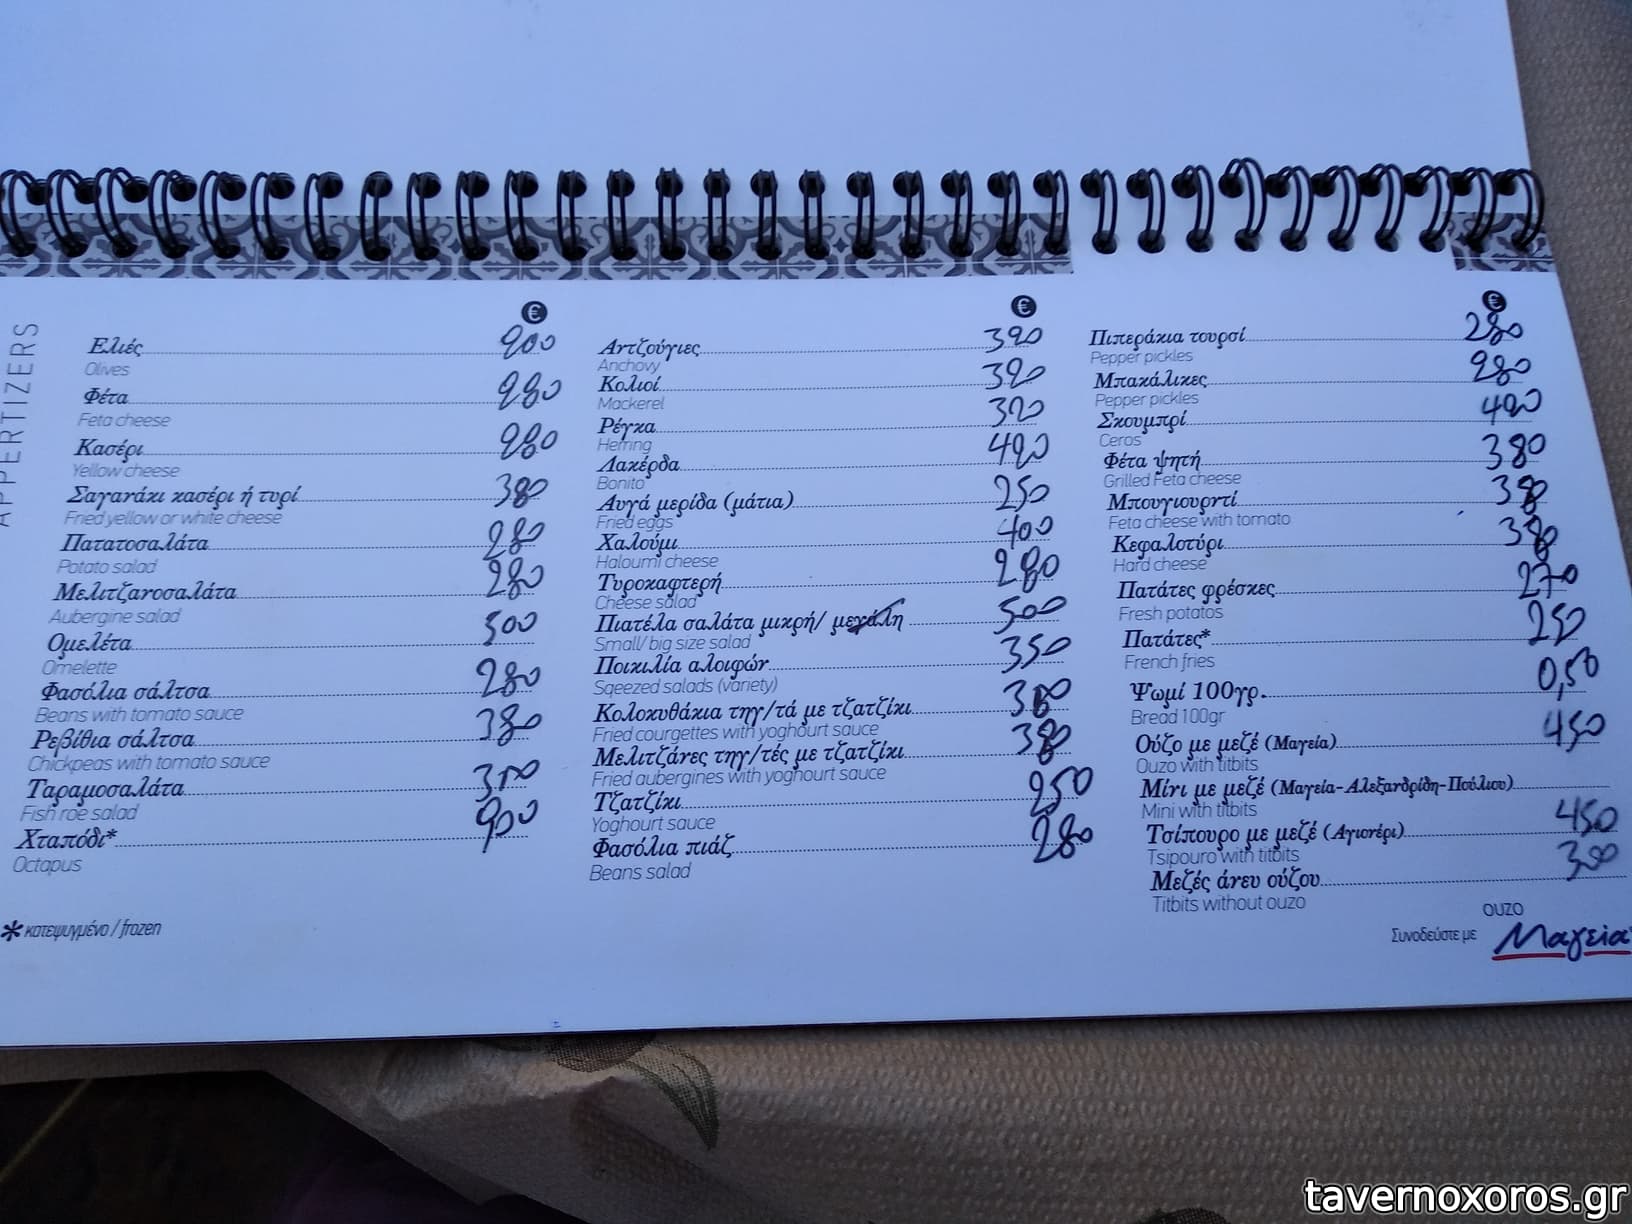 APPERTIZERS
€
Ελιές 200
Olives
Φέτα 280
Feta cheese
Κασέρι 280
Yellow cheese
Σαγανάκι κασέρι ή τυρί 380
Fried yellow or white cheese
Πατατοσαλάτα 280
Potato salad
Μελιτζανοσαλάτα 280
Aubergine salad
Ομελέτα 500
Omelette
Φασόλια σάλτσα 280
Beans with tomato sauce
Ρεβίθια σάλτσα 380
Chickpeas with tomato sauce
Ταραμοσαλάτα
Fish roe salad
Χταπόδι* 900
Octapus
*κατεψυγμένο / frozen
€
Αντζούγιες 320
Anchovy
Κολιοί 320
Mackerel
Ρέγκα 320
Herring
Λακέρδα 420
Bonito
Αυγά μερίδα (μάτια) 250
Fried eggs
Χαλούμι 400
Haloumi cheese
Τυροκαφτερή 280
Cheese salad
Πιατέλα σαλάτα μικρή/ μεγάλη 500
Small/ big size salad
Ποικιλία αλοιφών 350
Sqeezed salads (variety)
Κολοκυθάκια τηγ/τά με τζατζίκι
Fried courgettes with yoghourt sauce
Μελιτζάνες τηγ/τές με τζατζίκι 380
Fried aubergines with yoghourt sauce
Τζατζίκι 250
Yoghourt sauce
Φασόλια πιάζ 280
Beans salad
€
Πιπεράκια τουρσί 280
Pepper pickles
Μπακάλικες 280
Pepper pickles
Σκουμπρί 420
Ceros
Φέτα ψητή 380
Grilled Feta cheese
Μπουγιουρντί 380
Feta cheese with tomato
Κεφαλοτύρι 380
Hard cheese
Πατάτες φρέσκες 270
Fresh potatos
Πατάτες* 250
French fries
Ψωμί 100γρ. 0,50
Bread 100gr
Ούζο με μεζέ (Μαγεία) 450
Ouzo with titbits
Μίνι με μεζέ (Μαγεία-Αλεξανδρίδη-Πούλιου)
Mini with titbits
Τσίπουρο με μεζέ (Αγιονέρι) 450
Tsipouro with titbits
Μεζές άνευ ούζου 300
Titbits without ouzo
OUZO
Συνοδεύστε με Μαγεία
tavernoxoros.gr